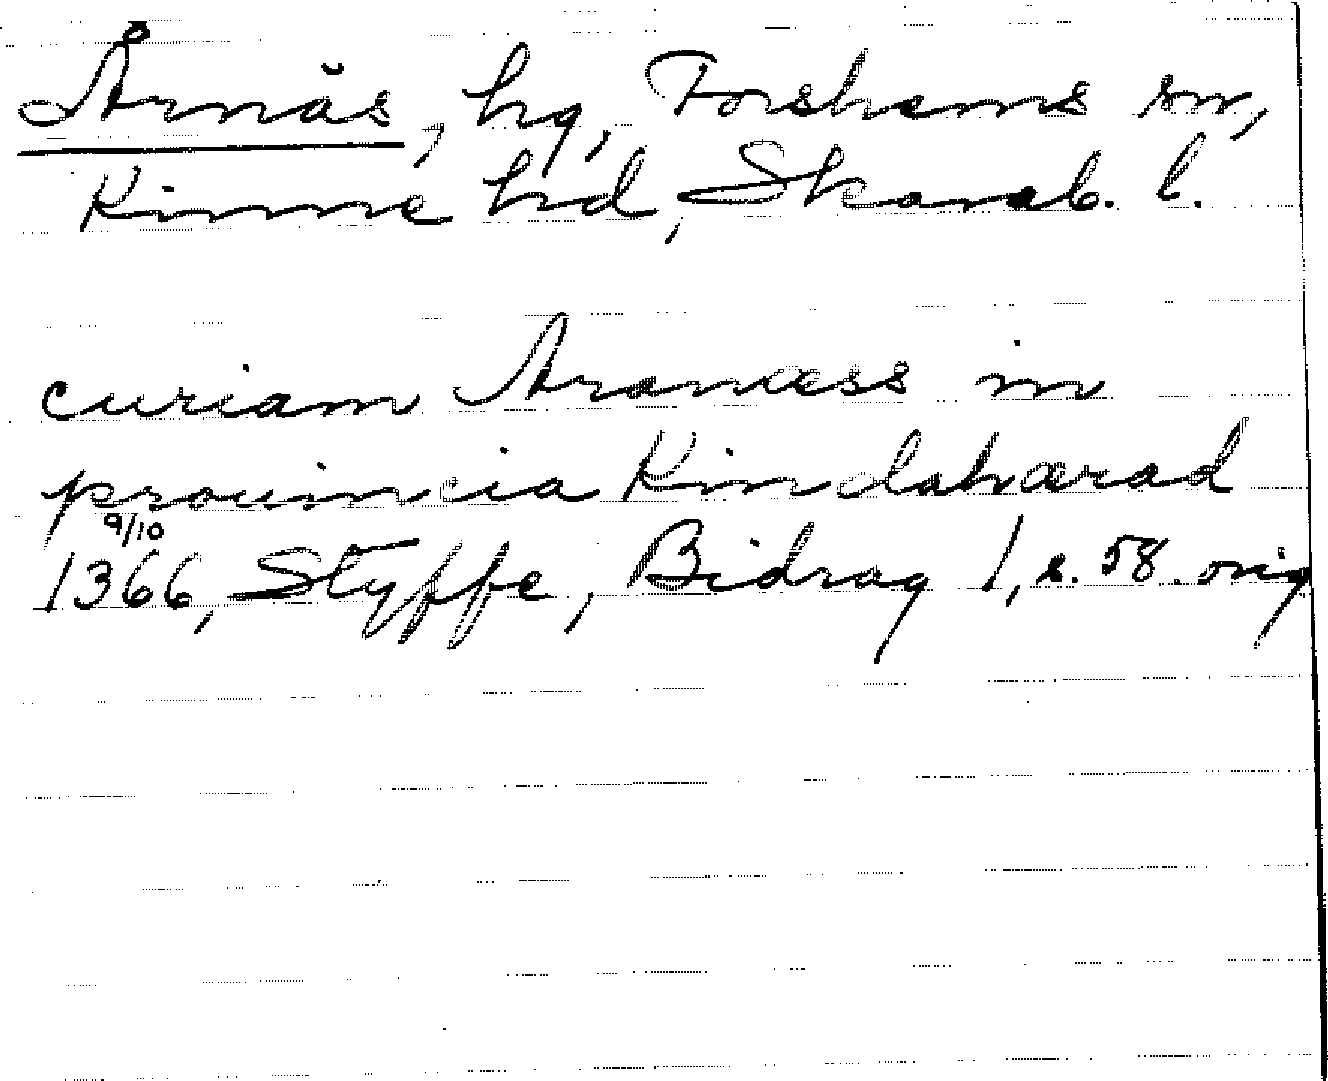 Årnäs, hg, Forshems sn,
Kinne hd, Skarab. l.
curiam Aranæss in
prouincia Kindahærad
9/10
1366, Styffe, Bidrag 1, s. 58. orig